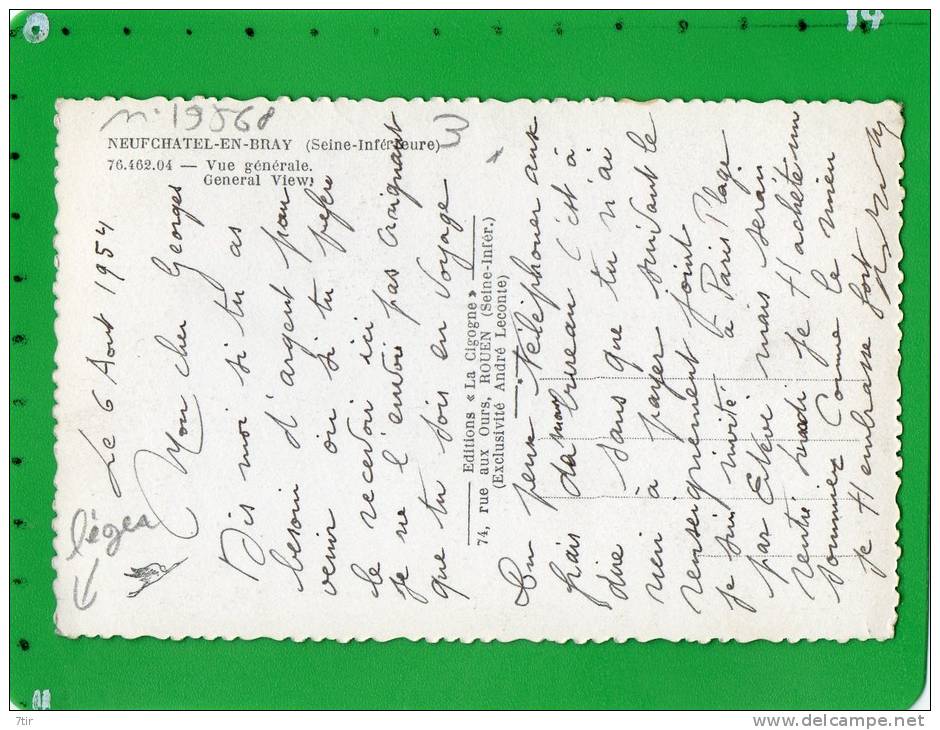 n° 19568
NEUFCHATEL-EN-BRAY (Seine-Inférieure)
76.462.04 — Vue générale.
General View.
3
léger
Le 6 Aout 1954
Mon cher Georges
Dis moi si tu as
besoin d'argent pour
venir ou si tu préfère
le recevoir ici
je ne l'envoi pas craignant
que tu sois en voyage
Editions « La Cigogne »
74, rue aux Ours, ROUEN (Seine-Infér.)
(Exclusivité André Leconte)
On peux téléphoner aux
frais du bureau c'est à
dire sans que tu n'ai
rien à payer suivant le
renseignement joint
je suis invité à Paris Plage
par mais serai
rentré je t'achète un
sommier comme le mien
je t'embrasse fort
14
11
7tir
www.delcampe.net